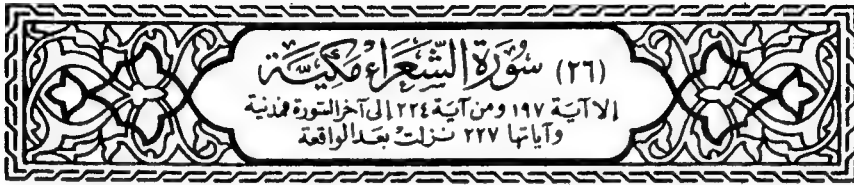 (٢٦) سُورَةُ الشُّعَرَاءِ مَكِّيَّة
إلا آية ١٩٧ ومن آية ٢٢٤ إلى آخر السورة فمدنية
وآياتها ٢٢٧ نزلت بعد الواقعة